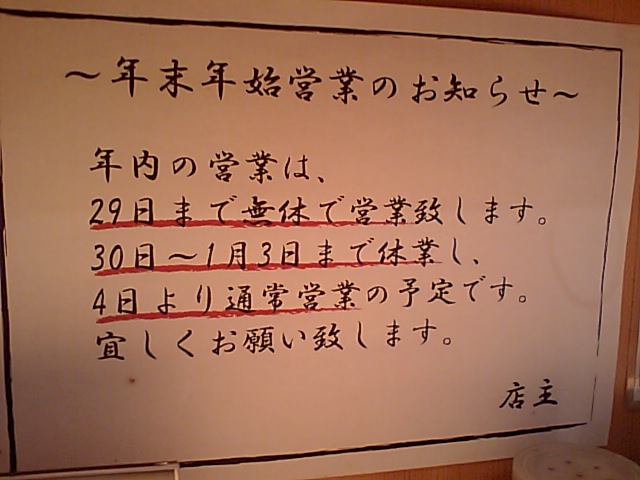 ～年末年始営業のお知らせ～
年内の営業は、
29日まで無休で営業致します。
30日～1月3日まで休業し、
4日より通常営業の予定です。
宜しくお願い致します。
店主